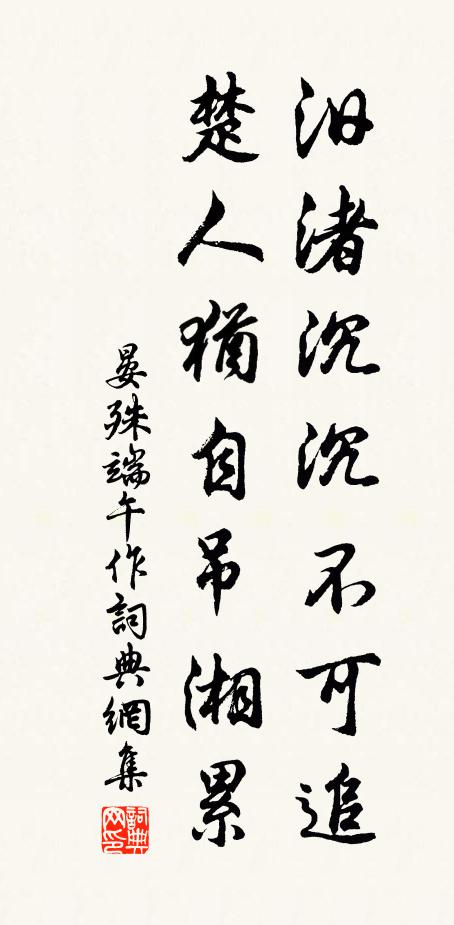 汨渚沉沉不可追
楚人猶自吊湘累
晏殊端午作詞典網集
詞典网印